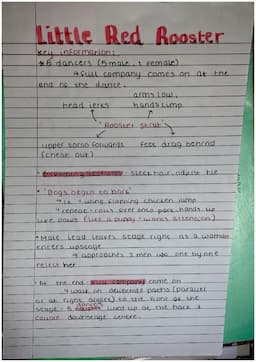 Little Red Rooster
Key information:
*6 dancers (5 male, 1 female)
↳ full company comes on at the
end of the dance.
arms low,
head jerks hands limp
'Rooster Strut'
upper torso forwards feet drag behind
(chest out)
- sleek hair, adjust tie
• 'Dogs begin to bark'
flapping chicken jump
↳ repeat - rolls over onto back, hands up
like paws (like a puppy - wants attention)
• Male lead leaves stage right as a woman
enters upstage
↳ approaches 3 men who one by one
reject her
• At the end full company come on
↳ walk on deliberate paths (parallel
or at right angles) to the front of the
stage. 5 dancers lined up at the back &
couple downstage centre.